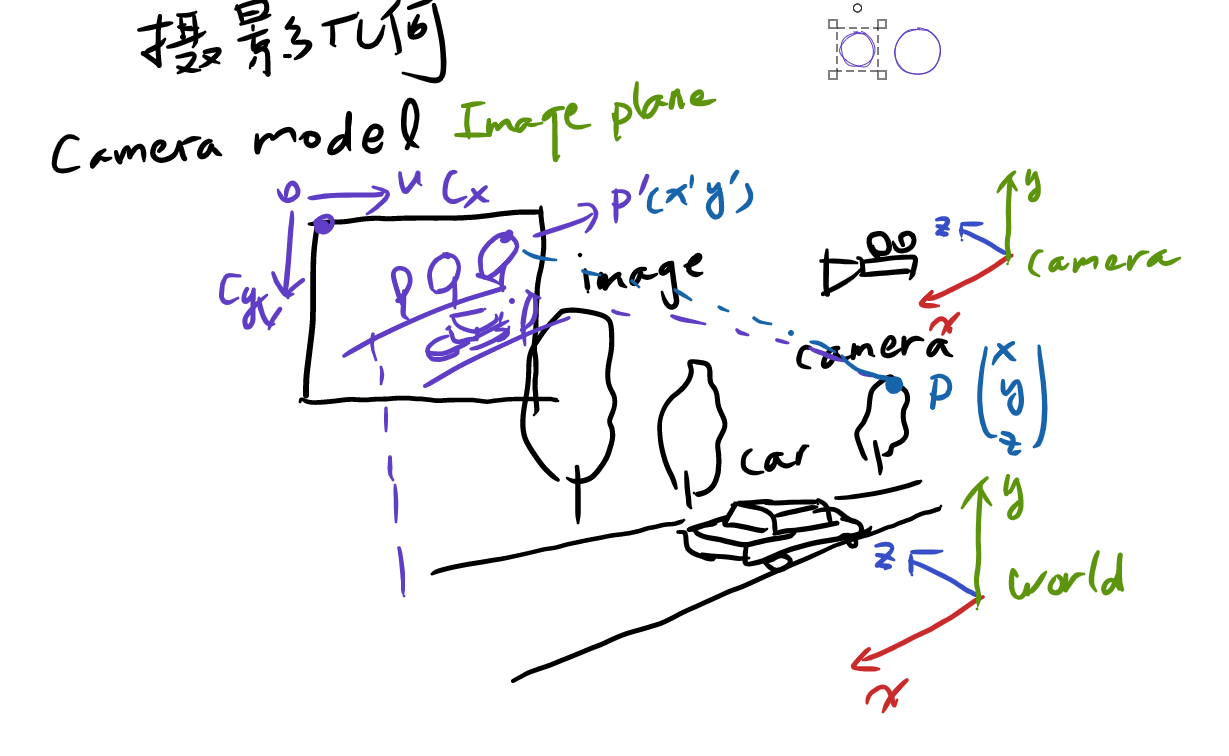 摄影几何
Camera model
Image plane
o
u
Cx
P'(x'y')
Cy
image
y
z
x
camera
camera
P
x
y
z
car
y
z
x
world